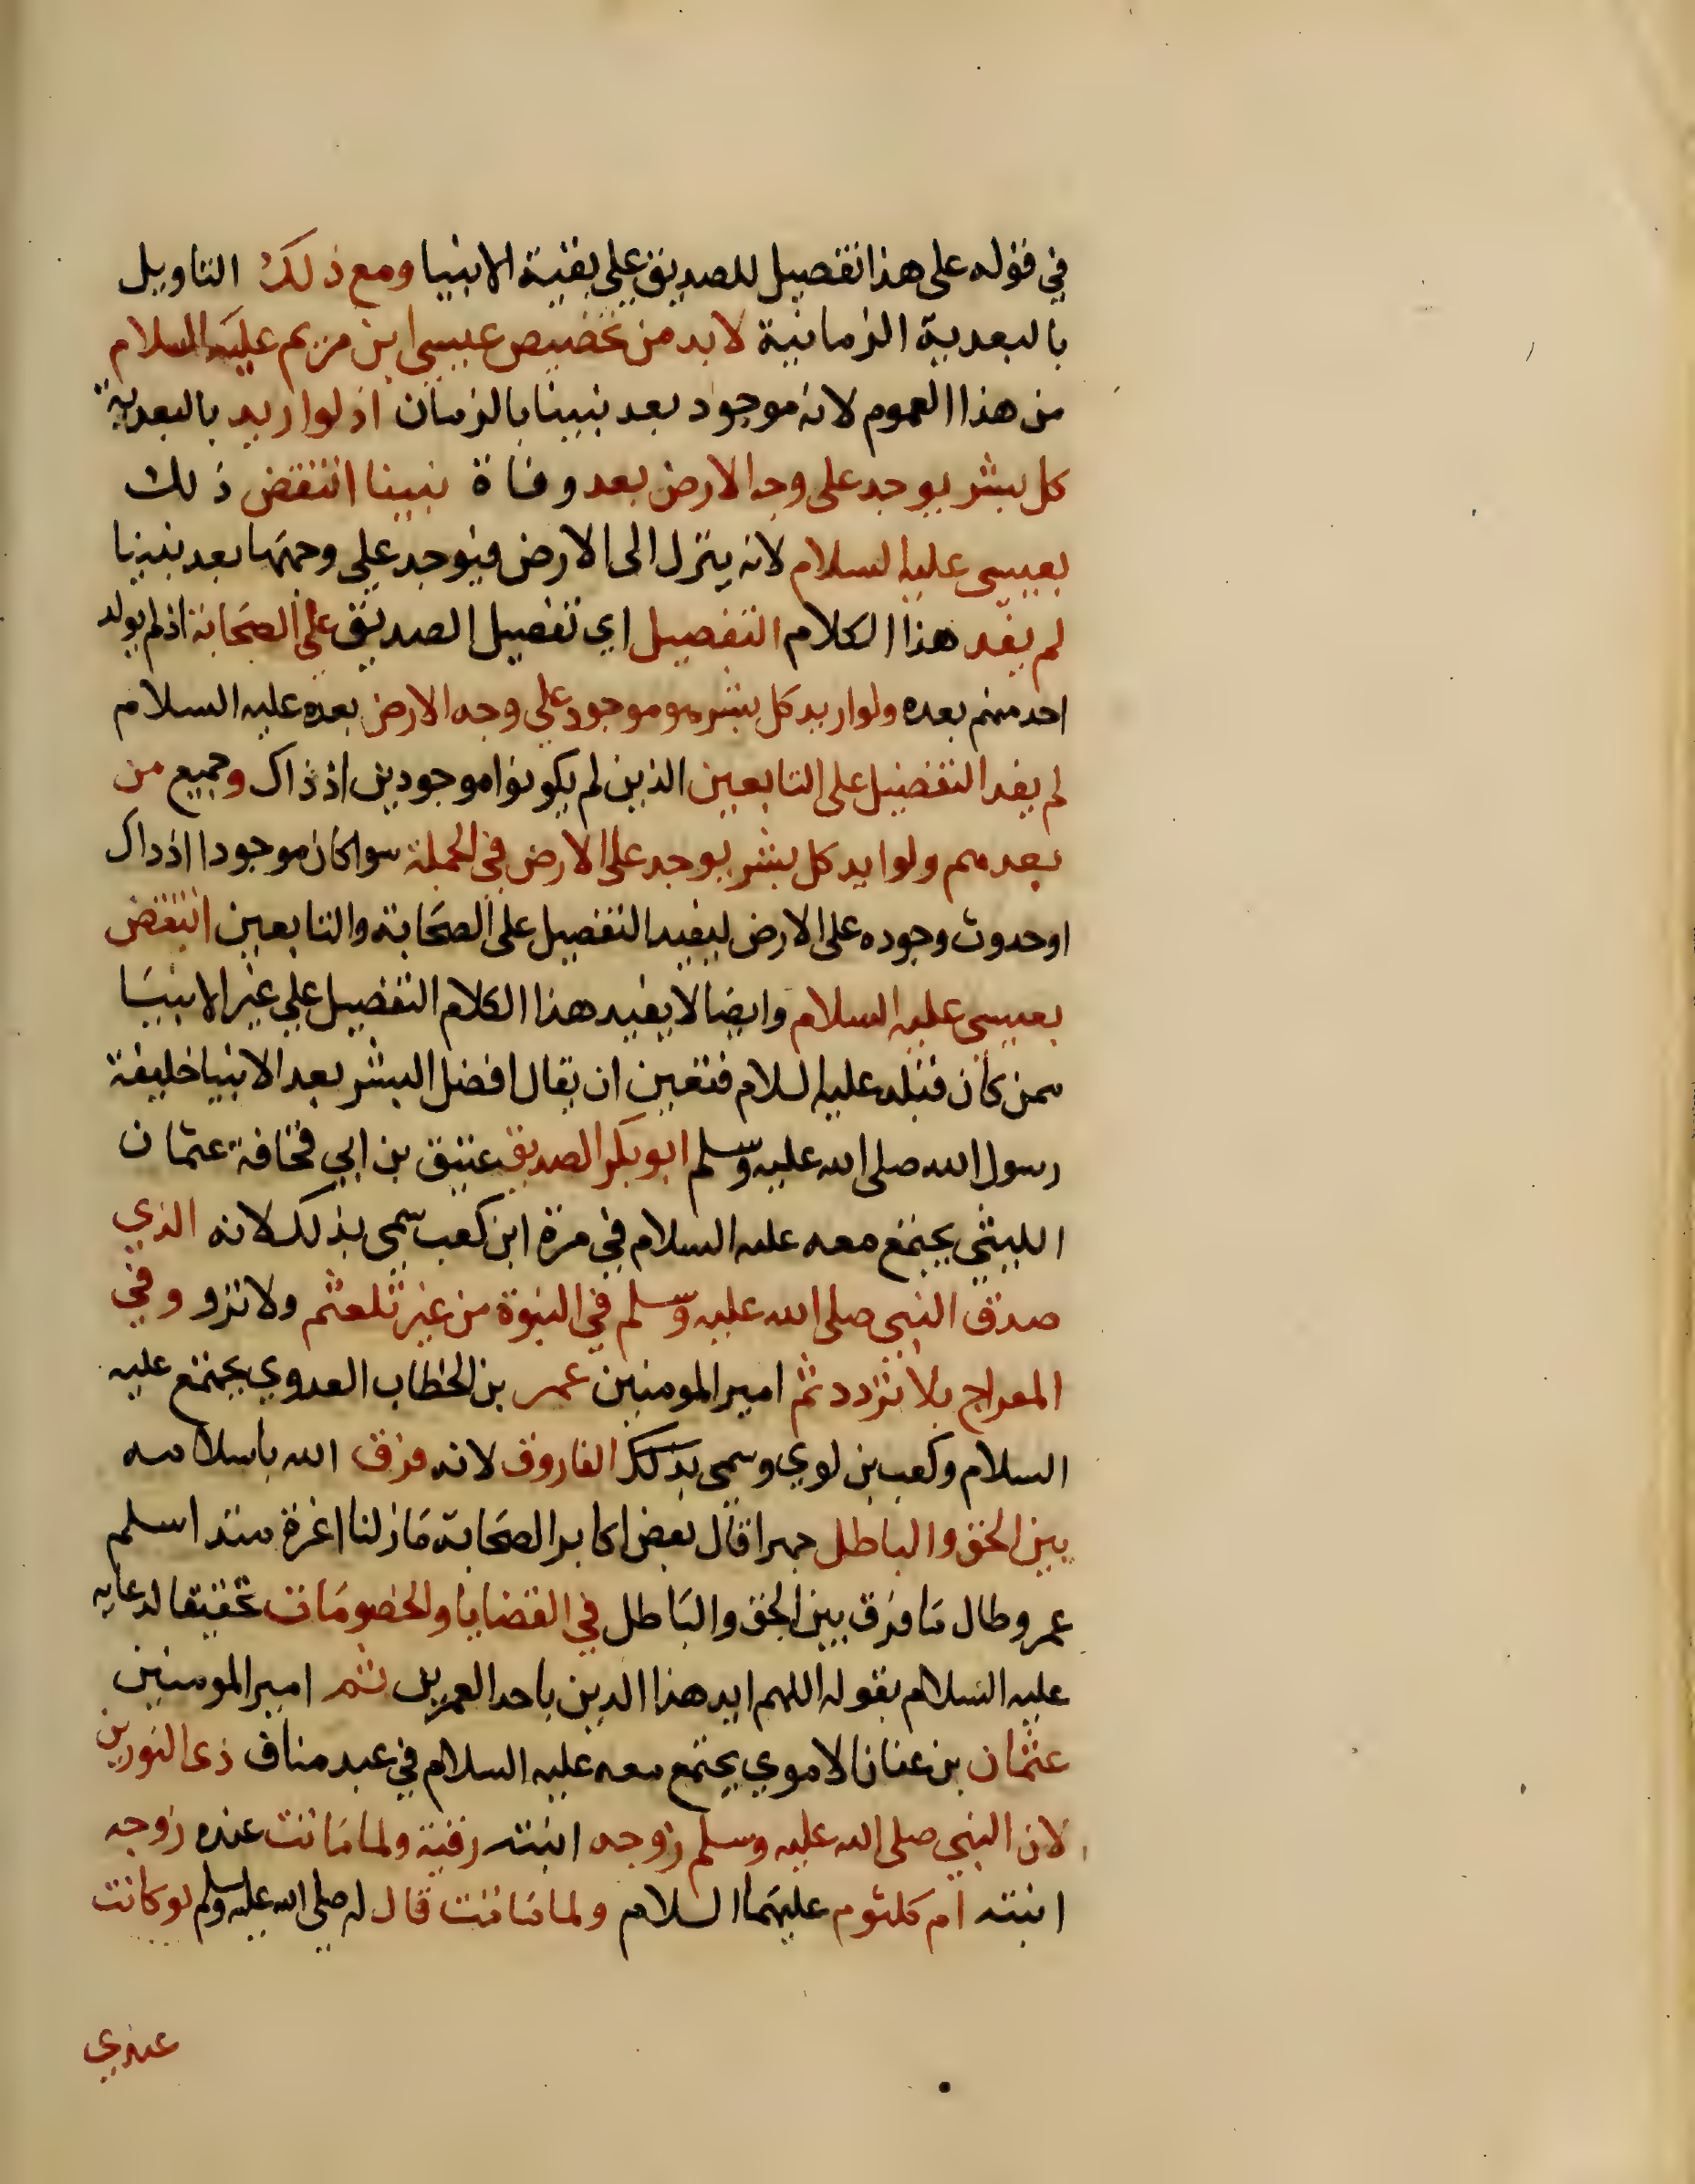 في قوله على هذا تفضيل للصديق علي بقية الانبيا ومع ذلك التاويل
بالبعدية الزمانية لابد من تخصيص عيسى ابن مريم عليه السلام
من هذا العموم لانه موجود بعد نبينا بالزمان اذ لو اريد بالبعدية
كل بشر يوجد على وجه الارض بعد وفاة نبينا انتقض ذلك
بعيسى عليه السلام لانه ينزل الى الارض فيوجد علي وجهها بعد نبينا
لم يفد هذا الكلام التفضيل اي تفضيل الصديق علي الصحابة اذ لم يولد
احد منهم بعده ولو اريد كل بشر هو موجود علي وجه الارض بعده عليه السلام
لم يفد التفضيل على التابعين الذين لم يكونوا موجودين اذ ذاك وجميع من
بعدهم ولو ايد كل بشر يوجد على الارض في الجملة سوا كان موجودا اذ داك
او حدوث وجوده على الارض ليفيد التفضيل على الصحابة والتابعين انتقض
بعيسى عليه السلام وايضا لا يفيد هذا الكلام التفضيل علي غير الانبيا
ممن كان قبله عليه السلام فتعين ان يقال افضل البشر بعد الانبيا خليفة
رسول الله صلى الله عليه وسلم ابو بكر الصديق عتيق بن ابي قحافة عثمان
الليثي يجتمع معه عليه السلام في مرة ابن كعب سمي بذلك لانه الذي
صدق النبي صلى الله عليه وسلم في النبوة من غير تلعثم ولا تزو وفي
المعراج بلا تردد ثم امير المومنين عمر بن الخطاب العدوي يجتمع عليه
السلام وكعب بن لوي وسمي بذلك الفاروق لانه فرق الله باسلامه
بين الحق والباطل جهرا قال بعض اكابر الصحابة مازلنا اعزة منذ اسلم
عمر وطال ما فرق بين الحق والباطل في القضايا والخصومات تحقيقا لدعايه
عليه السلام بقوله اللهم ايد هذا الدين باحد العمرين ثم امير المومنين
عثمان بن عفان الاموي يجتمع معه عليه السلام في عبد مناف ذي النورين
لان النبي صلى الله عليه وسلم زوجه ابنته رقية ولما ماتت عنده زوجه
ابنته ام كلثوم عليهما السلام ولما ماتت قال له صلى الله عليه وسلم لو كانت
عندي